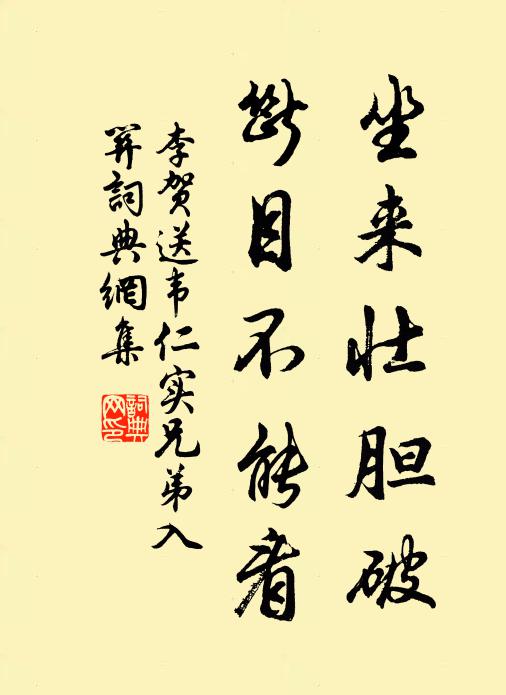 坐来壮胆破
断目不能看
李贺送韦仁实兄弟入
关詞典網集
詞典
网印